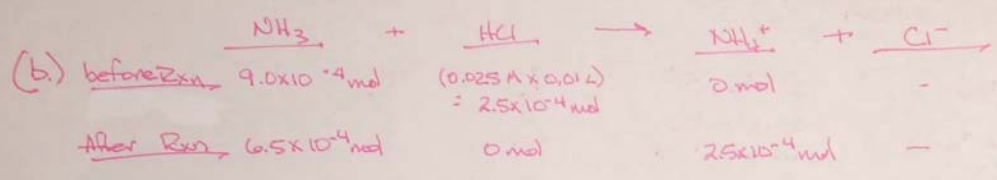 NH₃ + HCl → NH₄⁺ + Cl⁻
(b.) before Rxn 9.0x10⁻⁴ mol (0.025 M x 0.01 L) 0 mol -
= 2.5x10⁻⁴ mol
After Rxn 6.5x10⁻⁴ mol 0 mol 2.5x10⁻⁴ mol -